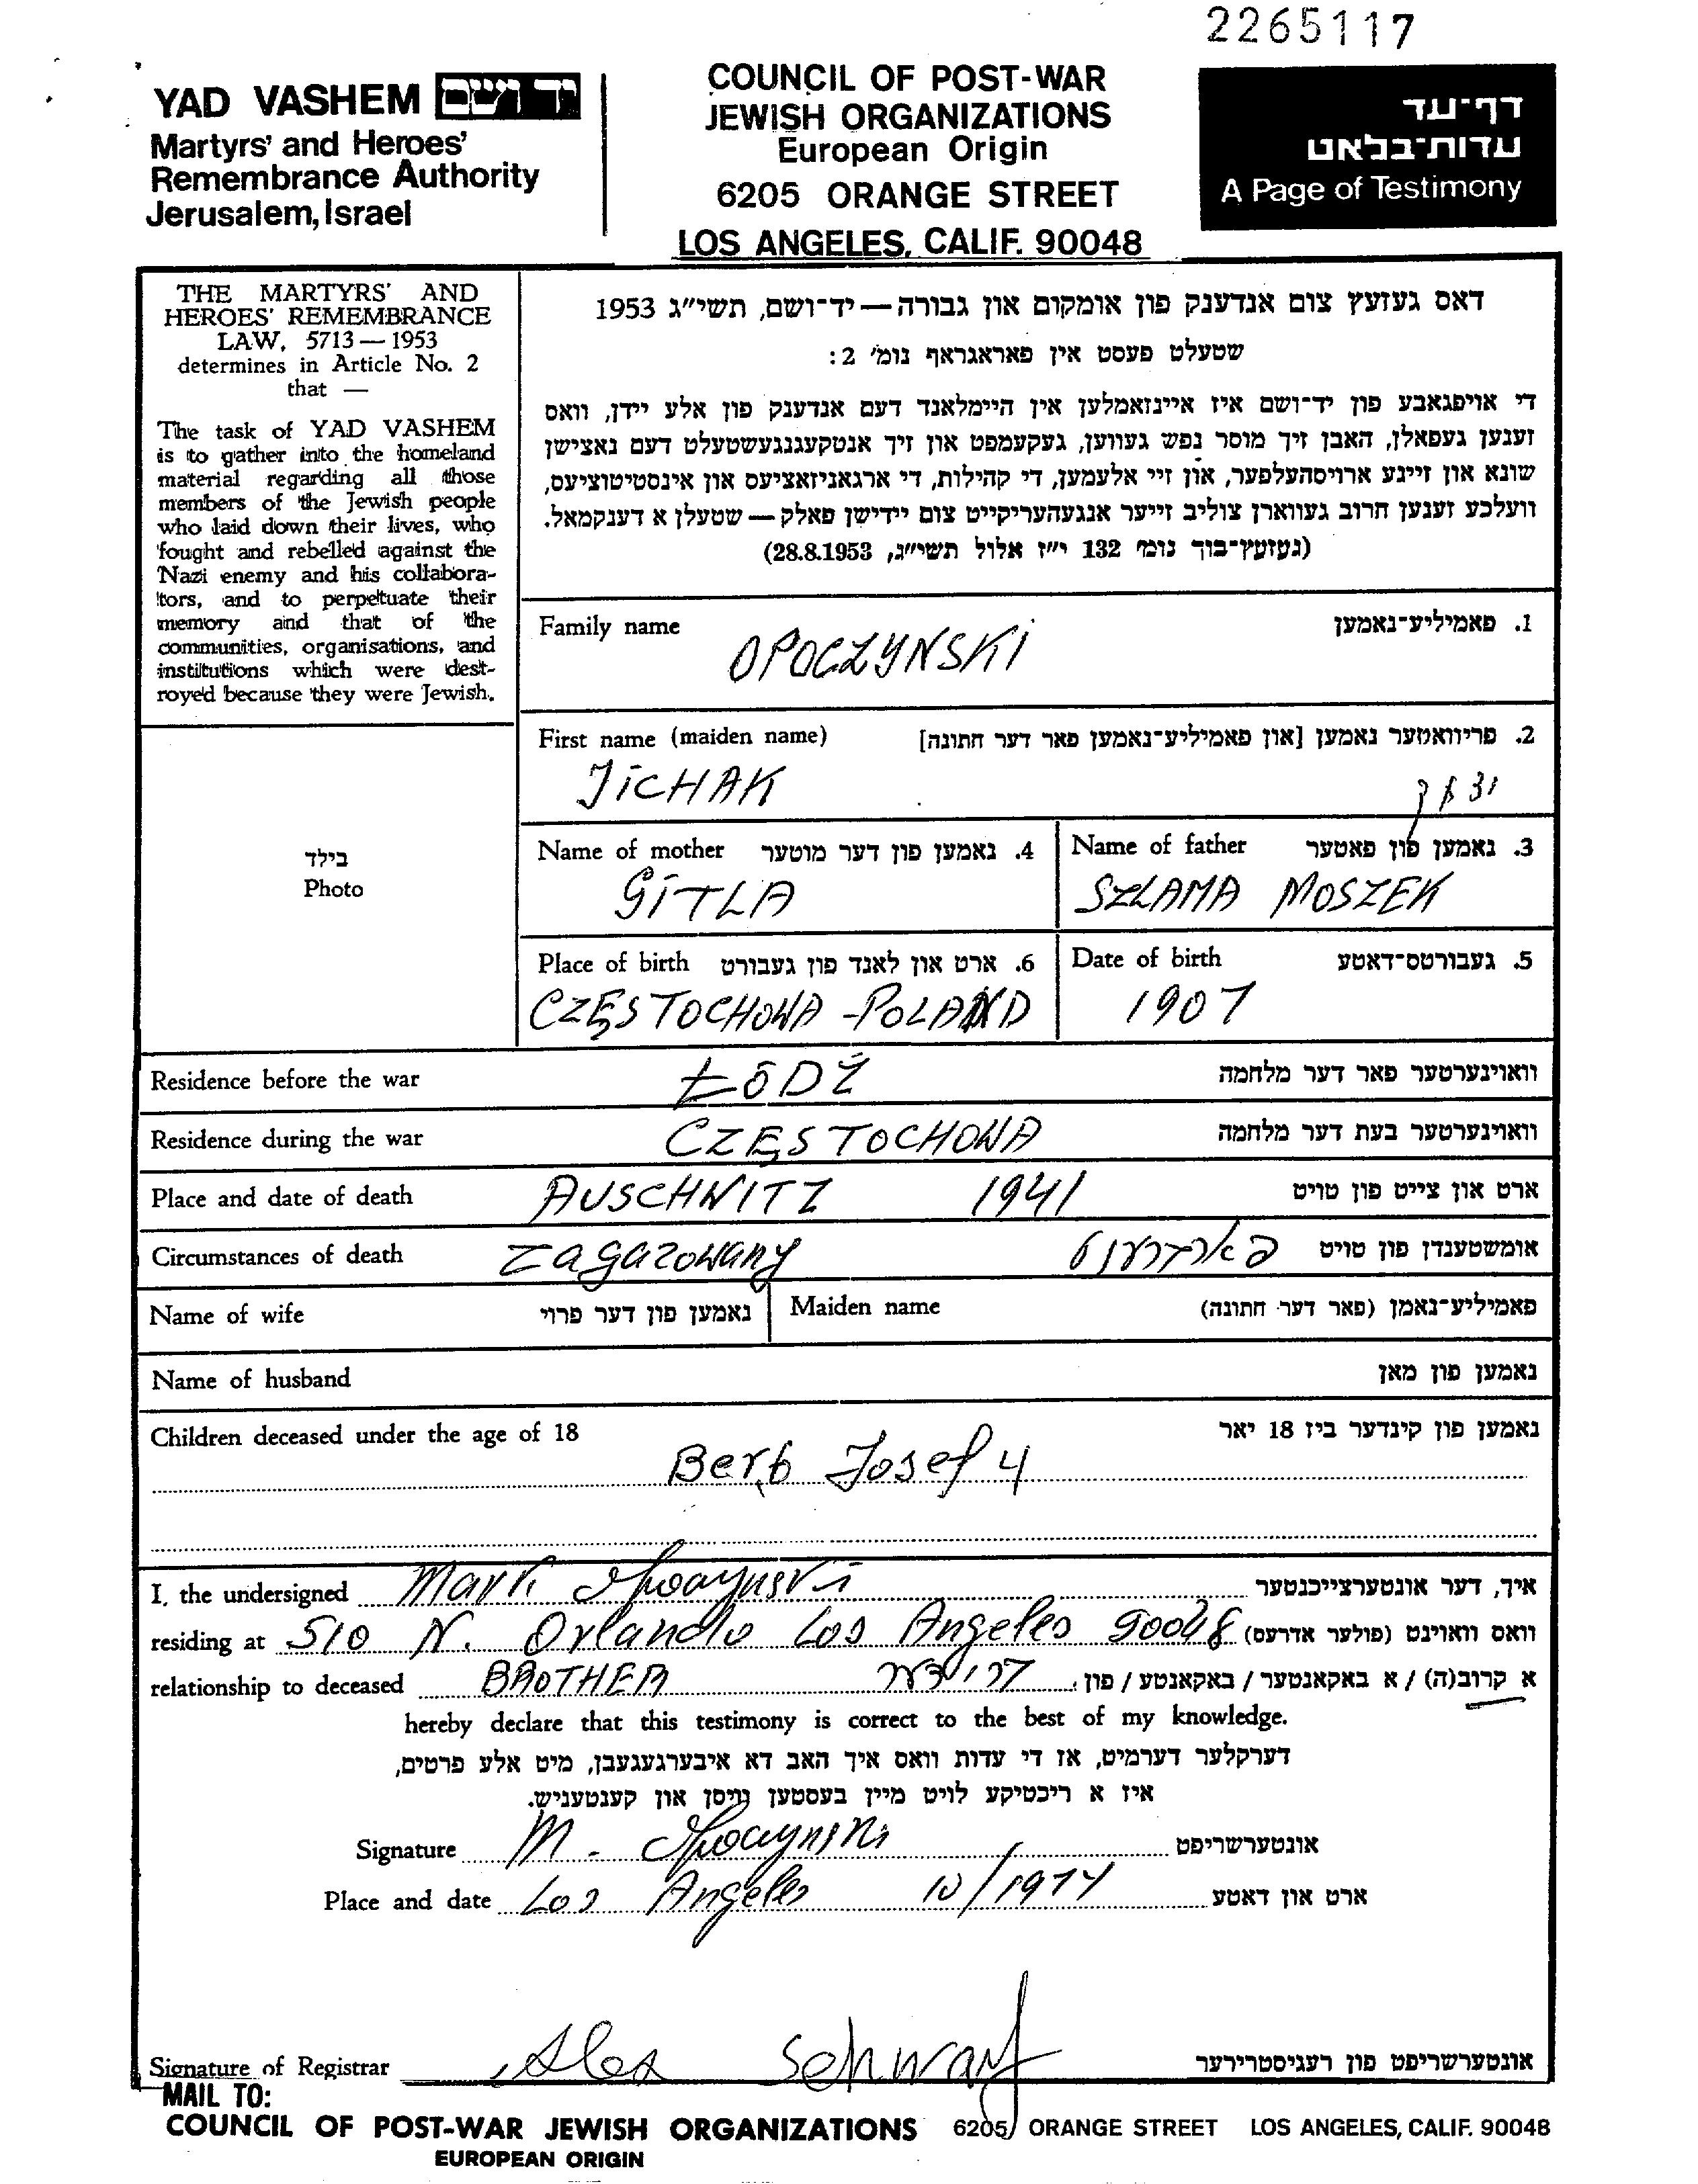 2265117
YAD VASHEM יד ושם
Martyrs' and Heroes'
Remembrance Authority
Jerusalem, Israel
COUNCIL OF POST-WAR
JEWISH ORGANIZATIONS
European Origin
6205 ORANGE STREET
LOS ANGELES, CALIF. 90048
דף-עד
עדות-בלאט
A Page of Testimony
THE MARTYRS' AND
HEROES' REMEMBRANCE
LAW, 5713 — 1953
determines in Article No. 2
that —
The task of YAD VASHEM
is to gather into the homeland
material regarding all those
members of the Jewish people
who laid down their lives, who
fought and rebelled against the
Nazi enemy and his collabora-
tors, and to perpetuate their
memory and that of the
communities, organisations, and
institutions which were dest-
royed because they were Jewish.
דאס געזעץ צום אנדענק פון אומקום און גבורה — יד-ושם, תשי"ג 1953
שטעלט פעסט אין פאראגראף נומ' 2:
די אויפגאבע פון יד-ושם איז איינזאמלען אין היימלאנד דעם אנדענק פון אלע יידן, וואס
זענען געפאלן, האבן זיך מוסר נפש געווען, געקעמפט און זיך אנטקעגנגעשטעלט דעם נאצישן
שונא און זיינע ארויסהעלפער, און זיי אלעמען, די קהילות, די ארגאניזאציעס און אינסטיטוציעס,
וועלכע זענען חרוב געווארן צוליב זייער אנגעהעריקייט צום יידישן פאלק — שטעלן א דענקמאל.
(געזעץ-בוך נומ' 132 י"ז אלול תשי"ג, 28.8.1953)
Family name 1. פאמיליע-נאמען
OPOCZYNSKI
First name (maiden name) 2. פריוואטער נאמען [און פאמיליע-נאמען פאר דער חתונה]
JICHAK
Name of mother 4. נאמען פון דער מוטער Name of father 3. נאמען פון פאטער
GITLA SZLAMA MOSZEK
Place of birth 6. ארט און לאנד פון געבורט Date of birth 5. געבורטס-דאטע
CZĘSTOCHOWA - POLAND 1907
בילד
Photo
Residence before the war ŁÓDŹ וואוינערטער פאר דער מלחמה
Residence during the war CZĘSTOCHOWA וואוינערטער בעת דער מלחמה
Place and date of death AUSCHWITZ 1941 ארט און צייט פון טויט
Circumstances of death zagazowany פארברענט אומשטענדן פון טויט
Name of wife נאמען פון דער פרוי Maiden name פאמיליע-נאמן (פאר דער חתונה)
Name of husband נאמען פון מאן
Children deceased under the age of 18 נאמען פון קינדער ביז 18 יאר
Josef 4
I, the undersigned Mark Opoczynski איך, דער אונטערצייכנטער
residing at 510 N. Orlando Los Angeles 90048 וואס וואוינט (פולער אדרעס)
relationship to deceased BROTHER ברודער א קרוב(ה) / א באקאנטער / באקאנטע / פון
hereby declare that this testimony is correct to the best of my knowledge.
דערקלער דערמיט, אז די עדות וואס איך האב דא איבערגעגעבן, מיט אלע פרטים,
איז א ריכטיקע לויט מיין בעסטען וויסן און קענטעניש.
Signature M. Opoczynski אונטערשריפט
Place and date Los Angeles 10/1974 ארט און דאטע
Signature of Registrar Alex Schwarz אונטערשריפט פון רעגיסטרירער
MAIL TO:
COUNCIL OF POST-WAR JEWISH ORGANIZATIONS 6205 ORANGE STREET LOS ANGELES, CALIF. 90048
EUROPEAN ORIGIN